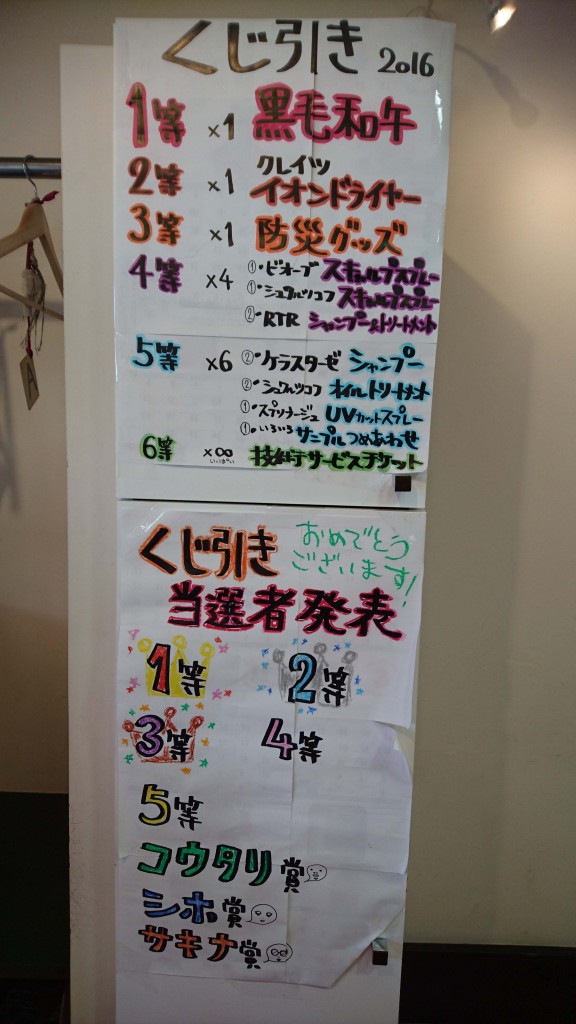 くじ引き 2016
1等 ×1 黒毛和牛
2等 ×1 クレイツ イオンドライヤー
3等 ×1 防災グッズ
4等 ×4 ①・ビオーブ スキャルプスプレー
①・シュワルツコフ スキャルプスプレー
②・RTR シャンプー&トリートメント
5等 ×6 ②・ケラスターゼ シャンプー
②・シュワルツコフ オイルトリートメント
①・スプリナージュ UVカットスプレー
①・いろいろ サンプルつめあわせ
6等 ×∞ いっぱい 技術サービスチケット
くじ引き おめでとう
ございます!
当選者発表
1等 2等
3等 4等
5等
コウタリ賞
シホ賞
サキナ賞
A